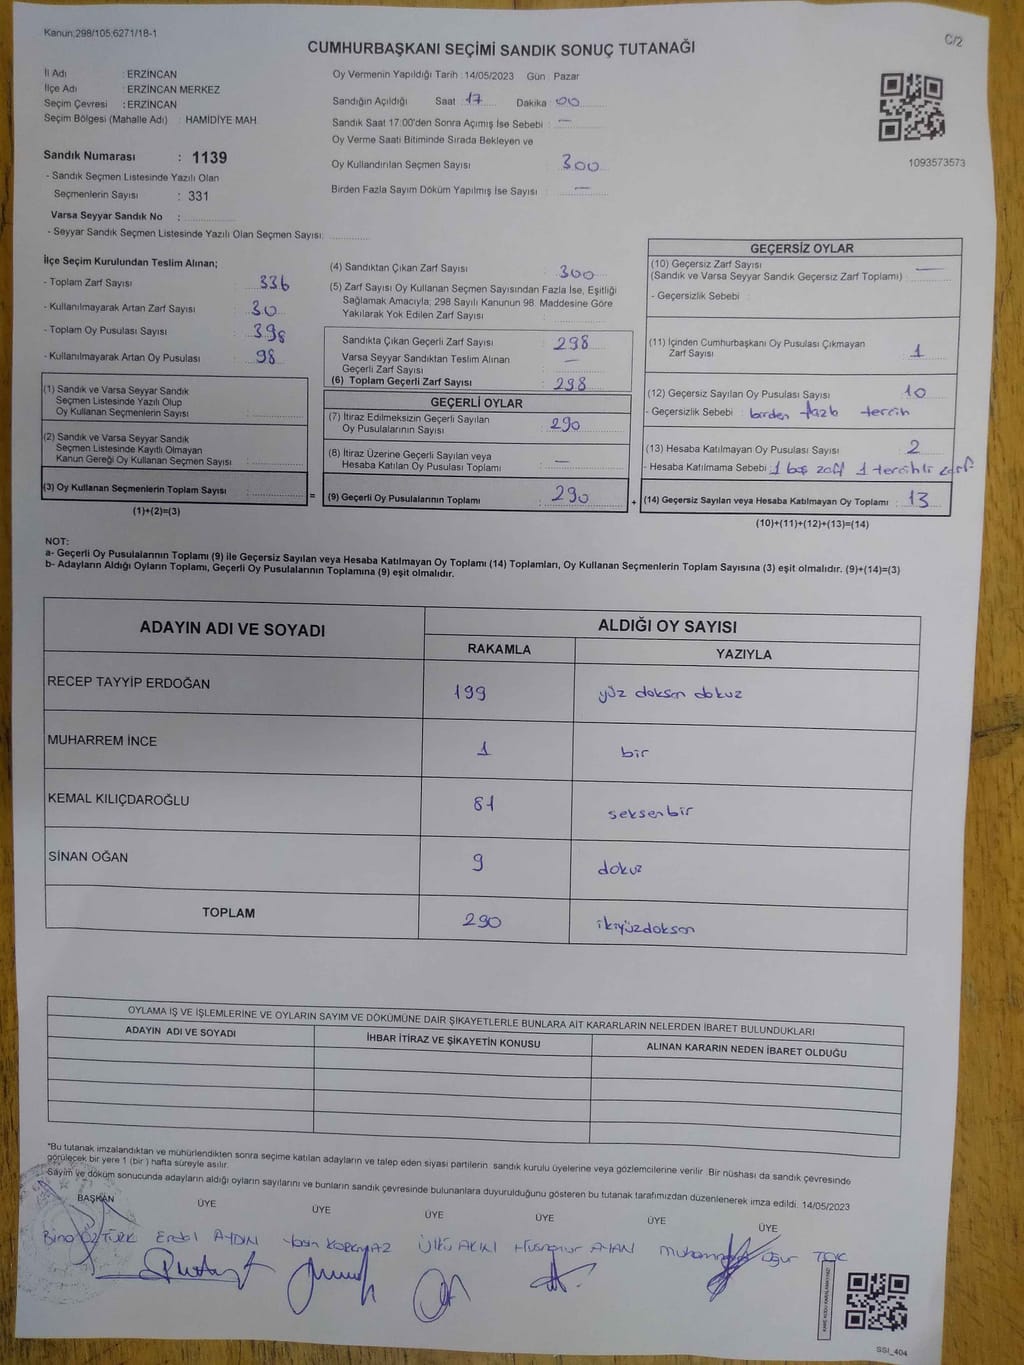 Kanun;298/105;6271/18-1
C/2
CUMHURBAŞKANI SEÇİMİ SANDIK SONUÇ TUTANAĞI
İl Adı : ERZİNCAN
İlçe Adı : ERZİNCAN MERKEZ
Seçim Çevresi : ERZİNCAN
Seçim Bölgesi (Mahalle Adı) : HAMİDİYE MAH.
Sandık Numarası : 1139
- Sandık Seçmen Listesinde Yazılı Olan
Seçmenlerin Sayısı : 331
Varsa Seyyar Sandık No :
- Seyyar Sandık Seçmen Listesinde Yazılı Olan Seçmen Sayısı:
Oy Vermenin Yapıldığı Tarih : 14/05/2023 Gün : Pazar
Sandığın Açıldığı Saat 17 Dakika 00
Sandık Saat 17:00'den Sonra Açımış İse Sebebi : —
Oy Verme Saati Bitiminde Sırada Bekleyen ve
Oy Kullandırılan Seçmen Sayısı : 300
Birden Fazla Sayım Döküm Yapılmış İse Sayısı : —
1093573573
İlçe Seçim Kurulundan Teslim Alınan;
- Toplam Zarf Sayısı : 336
- Kullanılmayarak Artan Zarf Sayısı : 30
- Toplam Oy Pusulası Sayısı : 398
- Kullanılmayarak Artan Oy Pusulası : 98
(1) Sandık ve Varsa Seyyar Sandık
Seçmen Listesinde Yazılı Olup
Oy Kullanan Seçmenlerin Sayısı :
(2) Sandık ve Varsa Seyyar Sandık
Seçmen Listesinde Kayıtlı Olmayan
Kanun Gereği Oy Kullanan Seçmen Sayısı :
(3) Oy Kullanan Seçmenlerin Toplam Sayısı :
(1)+(2)=(3)
=
(4) Sandıktan Çıkan Zarf Sayısı : 300
(5) Zarf Sayısı Oy Kullanan Seçmen Sayısından Fazla İse, Eşitliği
Sağlamak Amacıyla; 298 Sayılı Kanunun 98. Maddesine Göre
Yakılarak Yok Edilen Zarf Sayısı :
Sandıkta Çıkan Geçerli Zarf Sayısı : 298
Varsa Seyyar Sandıktan Teslim Alınan
Geçerli Zarf Sayısı : —
(6) Toplam Geçerli Zarf Sayısı : 298
GEÇERLİ OYLAR
(7) İtiraz Edilmeksizin Geçerli Sayılan
Oy Pusulalarının Sayısı : 290
(8) İtiraz Üzerine Geçerli Sayılan veya
Hesaba Katılan Oy Pusulası Toplamı : —
(9) Geçerli Oy Pusulalarının Toplamı : 290
+
GEÇERSİZ OYLAR
(10) Geçersiz Zarf Sayısı
(Sandık ve Varsa Seyyar Sandık Geçersiz Zarf Toplamı) : —
- Geçersizlik Sebebi :
(11) İçinden Cumhurbaşkanı Oy Pusulası Çıkmayan
Zarf Sayısı : 1
(12) Geçersiz Sayılan Oy Pusulası Sayısı : 10
- Geçersizlik Sebebi : birden fazla tercih
(13) Hesaba Katılmayan Oy Pusulası Sayısı : 2
- Hesaba Katılmama Sebebi : 1 boş zarf 1 tercihli zarf
(14) Geçersiz Sayılan veya Hesaba Katılmayan Oy Toplamı : 13
(10)+(11)+(12)+(13)=(14)
NOT:
a- Geçerli Oy Pusulalarının Toplamı (9) ile Geçersiz Sayılan veya Hesaba Katılmayan Oy Toplamı (14) Toplamları, Oy Kullanan Seçmenlerin Toplam Sayısına (3) eşit olmalıdır. (9)+(14)=(3)
b- Adayların Aldığı Oyların Toplamı, Geçerli Oy Pusulalarının Toplamına (9) eşit olmalıdır.
ADAYIN ADI VE SOYADI
ALDIĞI OY SAYISI
RAKAMLA YAZIYLA
RECEP TAYYİP ERDOĞAN 199 yüz doksan dokuz
MUHARREM İNCE 1 bir
KEMAL KILIÇDAROĞLU 81 seksenbir
SİNAN OĞAN 9 dokuz
TOPLAM 290 ikiyüzdoksan
OYLAMA İŞ VE İŞLEMLERİNE VE OYLARIN SAYIM VE DÖKÜMÜNE DAİR ŞİKAYETLERLE BUNLARA AİT KARARLARIN NELERDEN İBARET BULUNDUKLARI
ADAYIN ADI VE SOYADI İHBAR İTİRAZ VE ŞİKAYETİN KONUSU ALINAN KARARIN NEDEN İBARET OLDUĞU
*Bu tutanak imzalandıktan ve mühürlendikten sonra seçime katılan adayların ve talep eden siyasi partilerin sandık kurulu üyelerine veya gözlemcilerine verilir. Bir nüshası da sandık çevresinde
görülecek bir yere 1 (bir) hafta süreyle asılır.
Sayım ve döküm sonucunda adayların aldığı oyların sayılarını ve bunların sandık çevresinde bulunanlara duyurulduğunu gösteren bu tutanak tarafımızdan düzenlenerek imza edildi. 14/05/2023
BAŞKAN ÜYE ÜYE ÜYE ÜYE ÜYE ÜYE
ÖZTÜRK Erdal AYDIN KORKMAZ Ülkü AKIN AYAN TOK
SSI_404